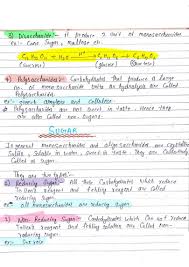 3) Disaccharides:- It produce 2 unit of monosaccharides
ex:- Cane Sugar, Maltose etc
C₁₂H₂₂O₁₁ + H₂O → C₆H₁₂O₆ + C₆H₁₂O₆
(Sucrose) (glucose) (fructose)
4) Polysaccharides:- Carbohydrates that produce a large
no. of monosaccharide units on hydrolysis are called
Polysaccharides.
ex:- starch, amylose and Cellulose
Polysaccharides are not sweet in taste. Hence they
are also called non-sugars.
SUGAR
In general monosaccharides and oligosaccharides are crystalline
Solids, Soluble in water, sweet in taste. They are Collectively
Called as Sugar.
They are two types:-
1) Reducing Sugar:- All those Carbohydrates which reduce
Tollen's reagent and fehling reagent are called
reducing sugar.
ex:- All monosaccharides are reducing sugar.
2) Non-Reducing Sugar:- Carbohydrates which can not reduce
Tollen's reagent and fehling solution are called Non-
reducing sugar.
ex:- Sucrose